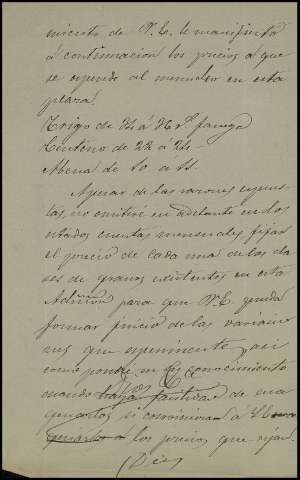 miento de V. E. le manifiesto
á continuacion los precios á que
se expende al menudeo en esta
plaza.
Trigo de 34 á 36 rs. fanega
Centeno de 22 á 24
Abena de 10 á 11.
Apesar de las razones espues
tas, no omitiré en adelante en los
estados cuentas mensuales fijar
el precio de cada una de las cla
ses de granos existentes en esta
Admon para que V. E. pueda
formar juicio de las variacio
nes que esperimente, asi
como poner en su conocimiento
cuando haya partidas de
á los precios que rijan